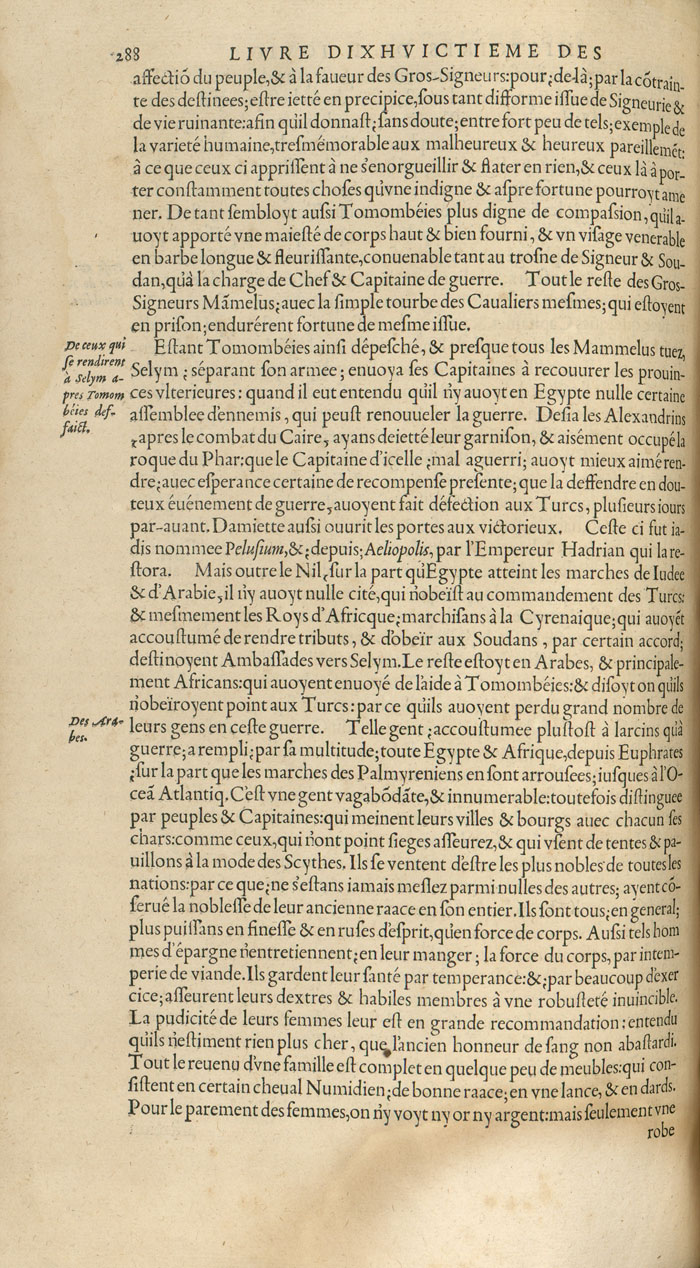 288 LIVRE DIXHVICTIEME DES
affectiõ du peuple,& à la faueur des Gros-Signeurs:pour;de-là;par la cõtrain-
te des destinees;estre ietté en precipice,sous tant difforme issue de Signeurie &
de vie ruinante:afin qu'il donnast;sans doute;entre fort peu de tels;exemple de
la varieté humaine,tresmémorable aux malheureux & heureux pareillemét:
à ce que ceux ci apprissent à ne s'enorgueillir & flater en rien,& ceux là à por-
ter constamment toutes choses qu'vne indigne & aspre fortune pourroyt ame
ner. De tant sembloyt aussi Tomombéies plus digne de compassion, qu'il a-
uoyt apporté vne maiesté de corps haut & bien fourni, & vn visage venerable
en barbe longue & fleurissante,conuenable tant au trosne de Signeur & Sou-
dan,qu'à la charge de Chef & Capitaine de guerre. Tout le reste des Gros-
Signeurs Mãmelus;auec la simple tourbe des Caualiers mesmes;qui estoyent
en prison;endurérent fortune de mesme issue.
De ceux qui
se rendirent
à Selym a-
pres Tomom
béies def-
faict.
Estant Tomombéies ainsi dépesché, & presque tous les Mammelus tuez,
Selym ; séparant son armee ; enuoya ses Capitaines à recouurer les prouin-
ces vlterieures : quand il eut entendu qu'il n'y auoyt en Egypte nulle certaine
assemblee d'ennemis, qui peust renouueler la guerre. Desia les Alexandrins
,apres le combat du Caire, ayans deietté leur garnison, & aisément occupé la
roque du Phar:que le Capitaine d'icelle ;mal aguerri; auoyt mieux aimé ren-
dre;auec esperance certaine de recompense presente; que la deffendre en dou-
teux éuénement de guerre,auoyent fait défection aux Turcs, plusieurs iours
par-auant. Damiette aussi ouurit les portes aux victorieux. Ceste ci fut ia-
dis nommee Pelusium,&;depuis;Aeliopolis, par l'Empereur Hadrian qui la re-
stora. Mais outre le Nil,sur la part qu'Egypte atteint les marches de Iudee
& d'Arabie,il n'y auoyt nulle cité,qui n'obeïst au commandement des Turcs:
& mesmement les Roys d'Africque;marchisans à la Cyrenaique;qui auoyét
accoustumé de rendre tributs, & d'obeïr aux Soudans , par certain accord;
destinoyent Ambassades vers Selym.Le reste estoyt en Arabes, & principale-
ment Africans:qui auoyent enuoyé de l'aide à Tomombéies:& disoyt on qu'ils
n'obeïroyent point aux Turcs:par ce qu'ils auoyent perdu grand nombre de
Des Ara-
bes.
leurs gens en ceste guerre. Telle gent ;accoustumee plustost à larcins qu'à
guerre;a rempli;par sa multitude;toute Egypte & Afrique,depuis Euphrates
;sur la part que les marches des Palmyreniens en sont arrousees;iusques à l'O-
ceã Atlantiq.C'est vne gent vagabõdãte,& innumerable:toutefois distinguee
par peuples & Capitaines:qui meinent leurs villes & bourgs auec chacun ses
chars:comme ceux,qui n'ont point sieges asseurez,& qui vsent de tentes & pa-
uillons à la mode des Scythes. Ils se ventent d'estre les plus nobles de toutes les
nations:par ce que;ne s'estans iamais meslez parmi nulles des autres; ayent cõ-
serué la noblesse de leur ancienne raace en son entier.Ils sont tous;en general;
plus puissans en finesse & en ruses d'esprit,qu'en force de corps. Aussi tels hom
mes d'épargne n'entretiennent;en leur manger ; la force du corps, par intem-
perie de viande.Ils gardent leur santé par temperance:&;par beaucoup d'exer
cice;asseurent leurs dextres & habiles membres à vne robusteté inuincible.
La pudicité de leurs femmes leur est en grande recommandation : entendu
qu'ils n'estiment rien plus cher, que l'ancien honneur de sang non abastardi.
Tout le reuenu d'vne famille est complet en quelque peu de meubles:qui con-
sistent en certain cheual Numidien;de bonne raace; en vne lance, & en dards.
Pour le parement des femmes,on n'y voyt ny or ny argent:mais seulement vne
robe